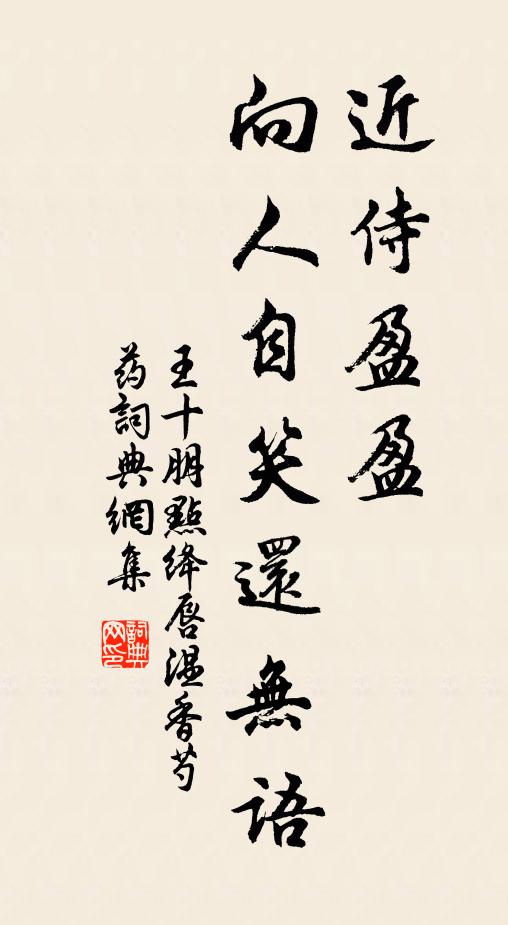 近侍盈盈
向人自笑還無語
王十朋點绛唇温香芍
药詞典網集
詞典网印